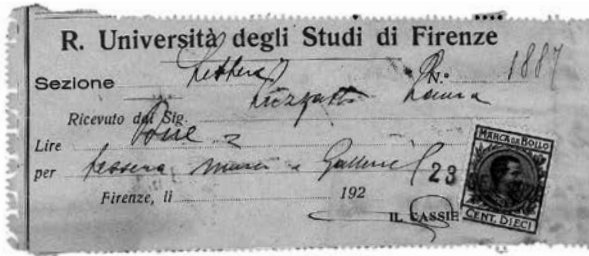 R. Università degli Studi di Firenze
Sezione Lettere N.° 1887
Ricevuto dal Sig. Laura
Lire
per tessera musei e Gallerie
Firenze, li 192
23
IL CASSIE
MARCA DA BOLLO
CENT. DIECI